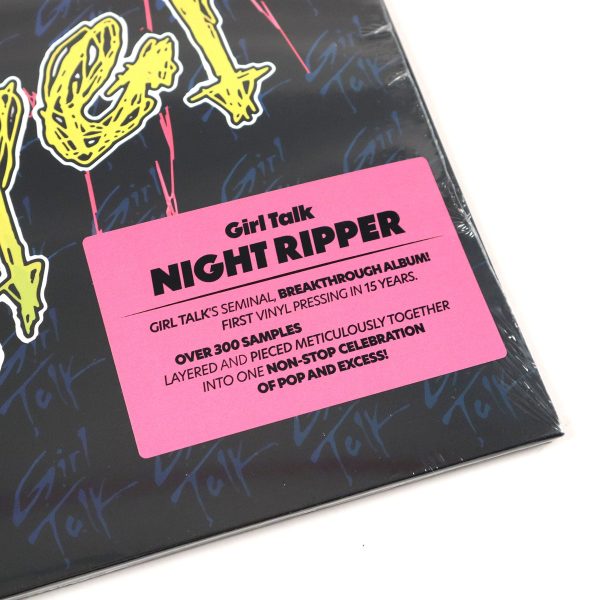 Girl Talk
NIGHT RIPPER
GIRL TALK'S SEMINAL, BREAKTHROUGH ALBUM!
FIRST VINYL PRESSING IN 15 YEARS.
OVER 300 SAMPLES
LAYERED AND PIECED METICULOUSLY TOGETHER
INTO ONE NON-STOP CELEBRATION
OF POP AND EXCESS!
Girl Talk
Girl Talk
Girl Talk
Girl Talk
Girl Talk